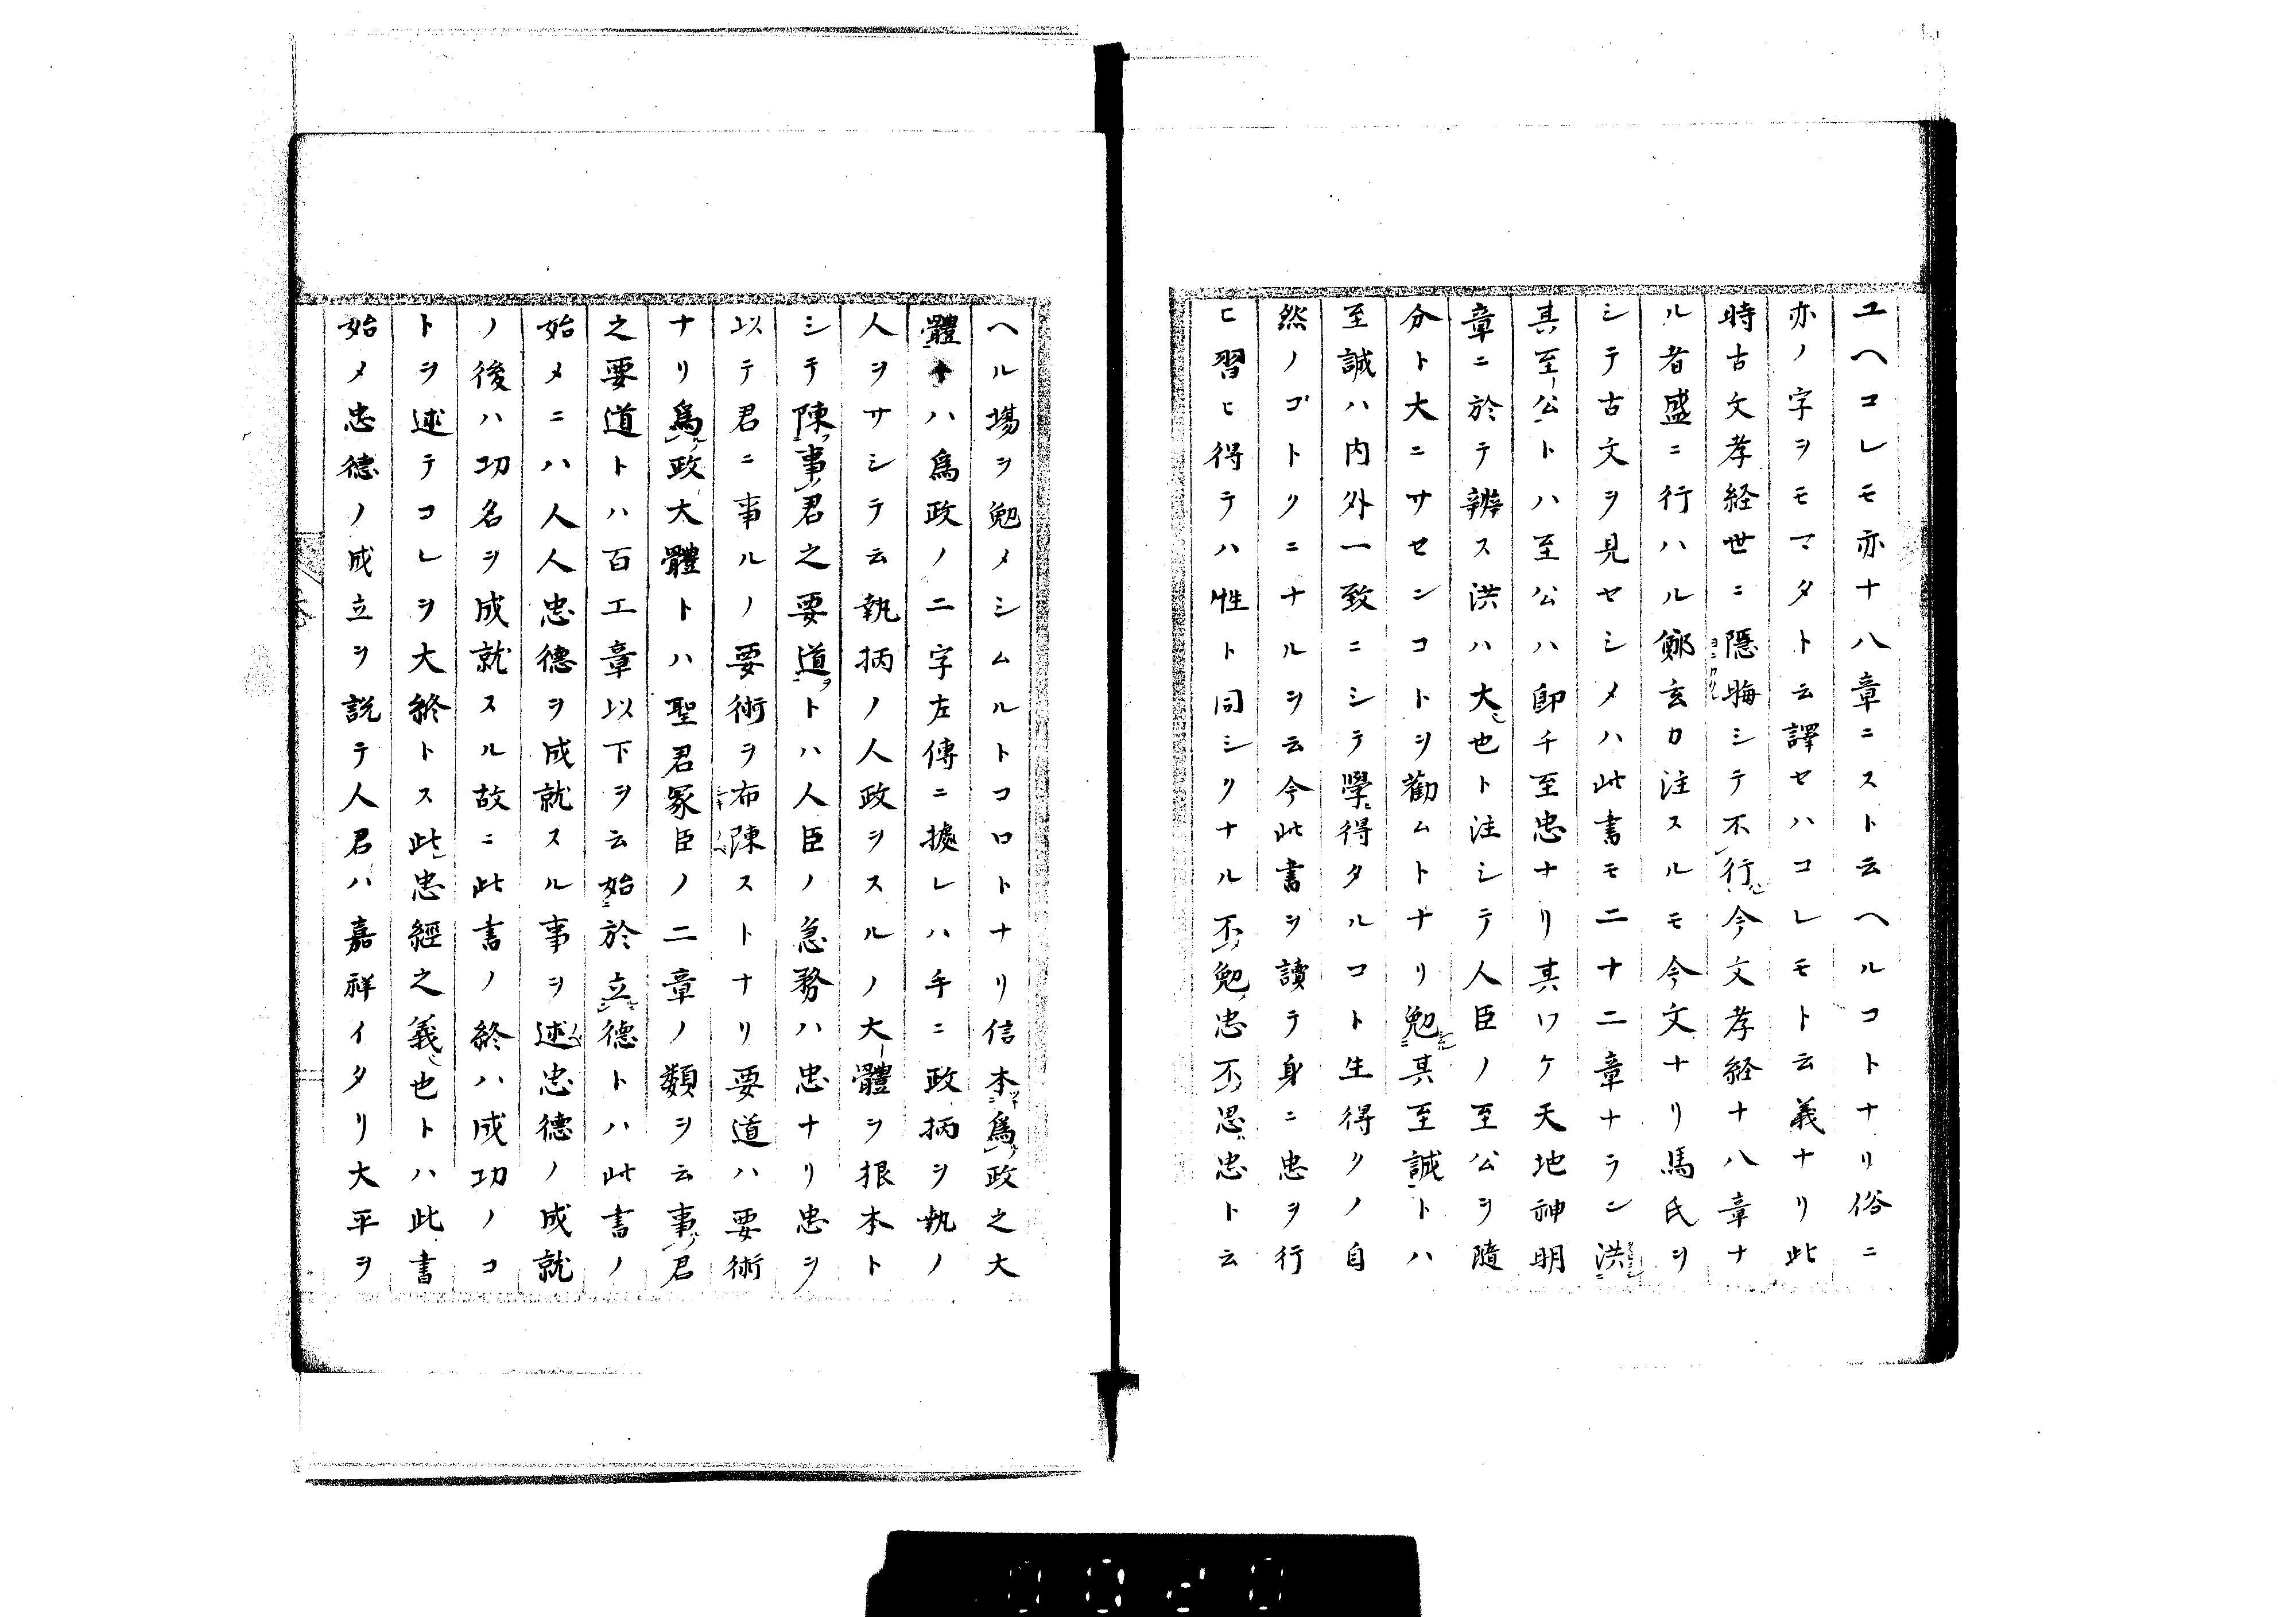 ユヘコレモ亦十八章ニスト云ヘルコトナリ俗ニ
亦ノ字ヲモマタト云譯セハコレモト云義ナリ此
時古文孝経世ニ隠晦シテ不行今文孝経十八章ナ
ル者盛ニ行ハル鄭玄カ注スルモ今文ナリ馬氏ヲ
シテ古文ヲ見セシメハ此書モ二十二章ナラン洪
其至公トハ至公ハ即チ至忠ナリ其ワケ天地神明
章ニ於テ辨ス洪ハ大也ト注シテ人臣ノ至公ヲ随
分ト大ニサセンコトヲ勸ムトナリ勉其至誠トハ
至誠ハ内外一致ニシテ學得タルコト生得クノ自
然ノゴトクニナルヲ云今此書ヲ讀テ身ニ忠ヲ行
ヒ習ヒ得テハ性ト同シクナル不勉忠不思忠ト云
ヘル場ヲ勉メシムルトコロトナリ信本為政之大
體ハ為政ノ二字左傳ニ據レハ手ニ政柄ヲ執ノ
人ヲサシテ云執柄ノ人政ヲスルノ大體ヲ根本ト
シテ陳事君之要道トハ人臣ノ急務ハ忠ナリ忠ヲ
以テ君ニ事ルノ要術ヲ布陳ストナリ要道ハ要術
ナリ為政大體トハ聖君冢臣ノ二章ノ類ヲ云事君
之要道トハ百工章以下ヲ云始於立德トハ此書ノ
始メニハ人人忠德ヲ成就スル事ヲ述忠德ノ成就
ノ後ハ功名ヲ成就スル故ニ此書ノ終ハ成功ノコ
トヲ述テコレヲ大終トス此忠經之義也トハ此書
始メ忠德ノ成立ヲ説テ人君ハ嘉祥イタリ大平ヲ
0020